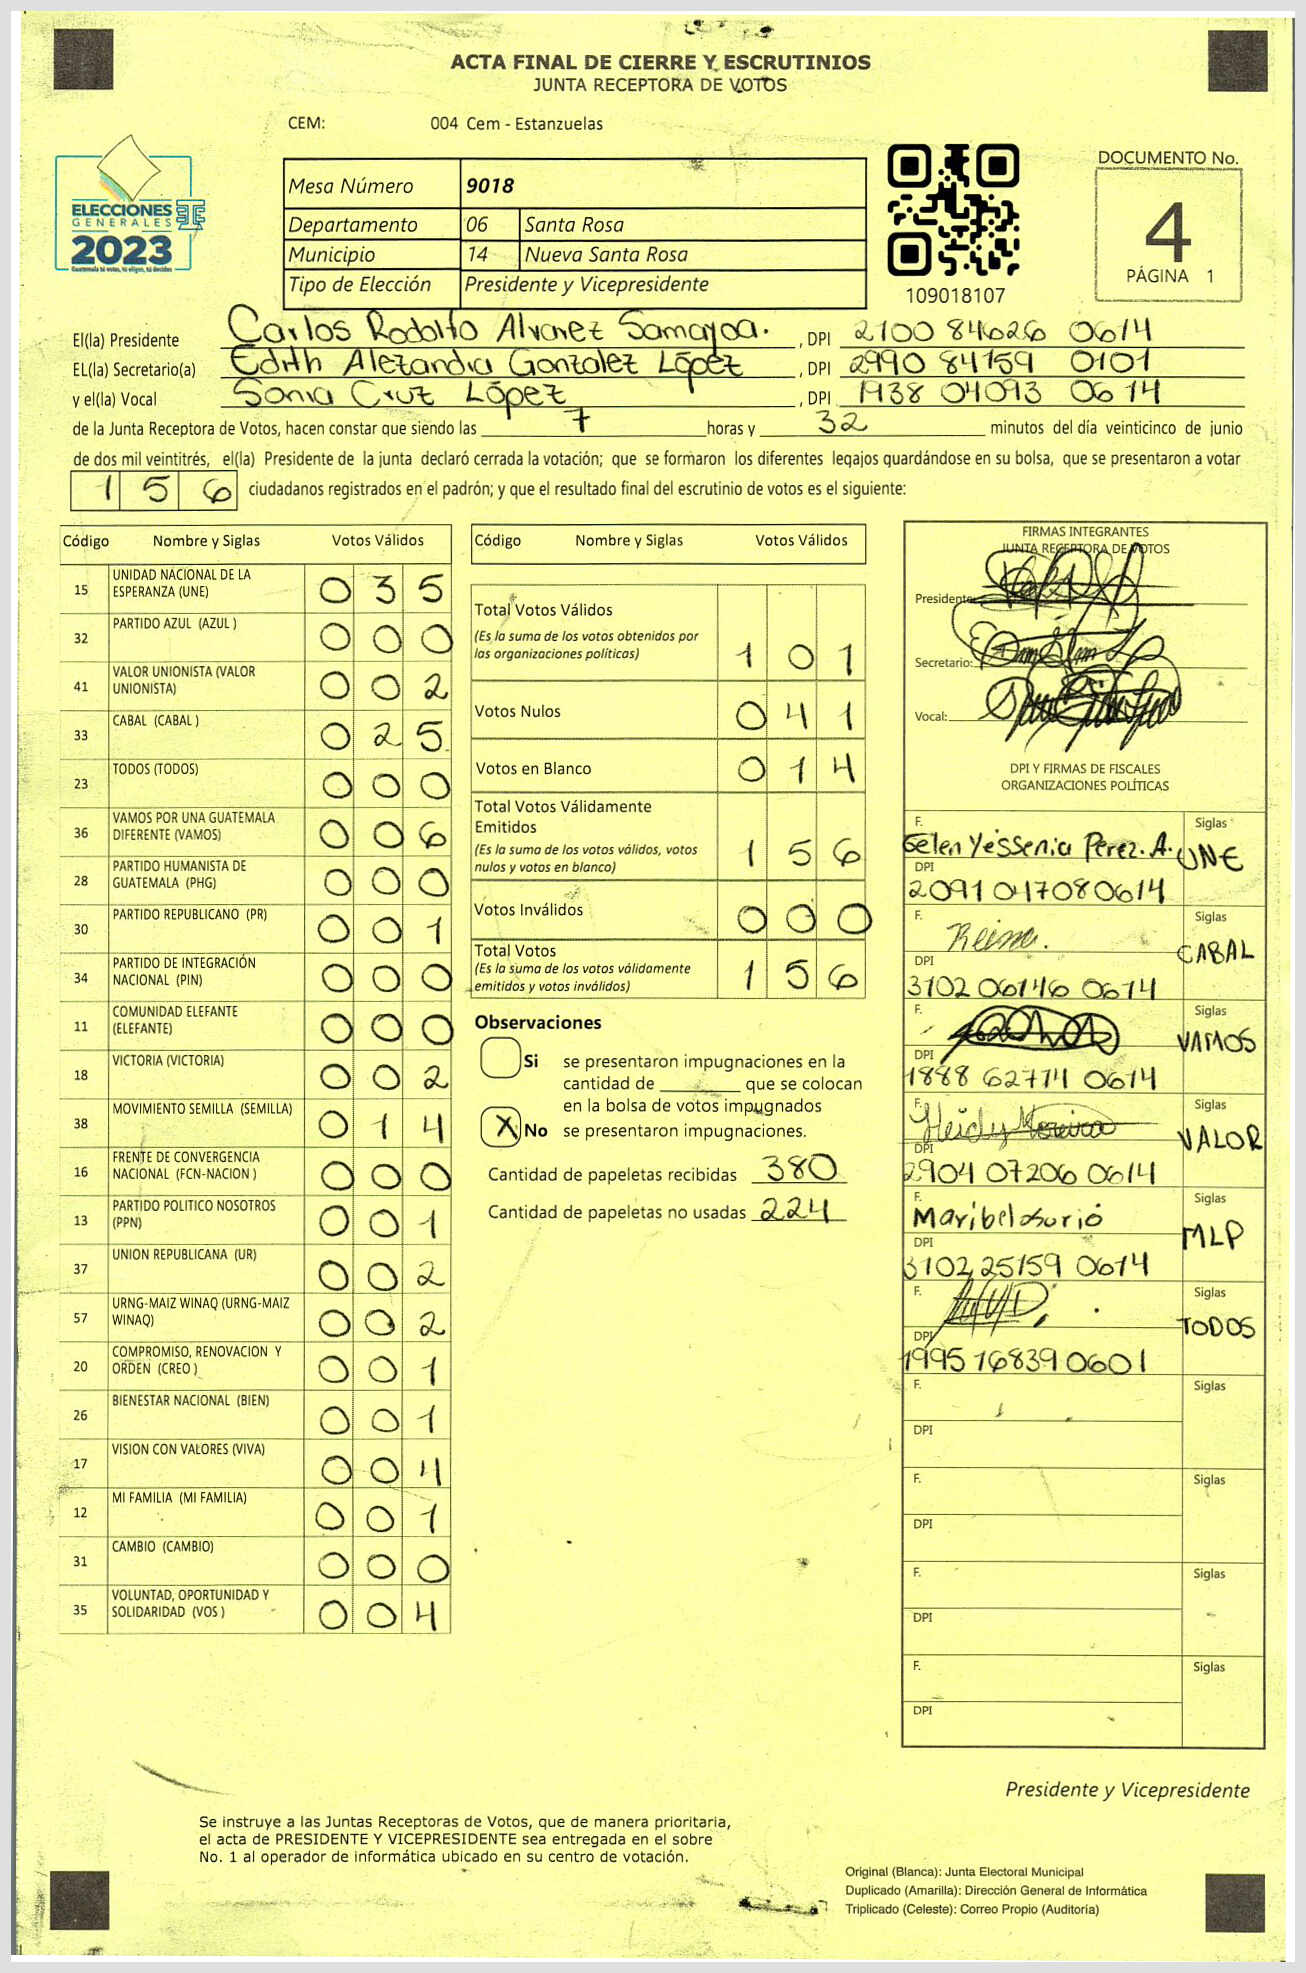 ACTA FINAL DE CIERRE Y ESCRUTINIOS
JUNTA RECEPTORA DE VOTOS
CEM: 004 Cem - Estanzuelas
ELECCIONES
GENERALES
2023
Guatemala tú votas, tú eliges, tú decides
Mesa Número 9018
Departamento 06 Santa Rosa
Municipio 14 Nueva Santa Rosa
Tipo de Elección Presidente y Vicepresidente
109018107
DOCUMENTO No.
4
PÁGINA 1
El(la) Presidente Carlos Rodolfo Alvarez Samayoa. , DPI 2100 84626 0614
EL(la) Secretario(a) Edith Alezandra Gonzalez López , DPI 2990 84159 0101
y el(la) Vocal Sonia Cruz López , DPI 1938 04093 0614
de la Junta Receptora de Votos, hacen constar que siendo las 7 horas y 32 minutos del día veinticinco de junio
de dos mil veintitrés, el(la) Presidente de la junta declaró cerrada la votación; que se formaron los diferentes legajos guardándose en su bolsa, que se presentaron a votar
156 ciudadanos registrados en el padrón; y que el resultado final del escrutinio de votos es el siguiente:
Código Nombre y Siglas Votos Válidos
15 UNIDAD NACIONAL DE LA ESPERANZA (UNE) 0 3 5
32 PARTIDO AZUL (AZUL ) 0 0 0
41 VALOR UNIONISTA (VALOR UNIONISTA) 0 0 2
33 CABAL (CABAL ) 0 2 5
23 TODOS (TODOS) 0 0 0
36 VAMOS POR UNA GUATEMALA DIFERENTE (VAMOS) 0 0 6
28 PARTIDO HUMANISTA DE GUATEMALA (PHG) 0 0 0
30 PARTIDO REPUBLICANO (PR) 0 0 1
34 PARTIDO DE INTEGRACIÓN NACIONAL (PIN) 0 0 0
11 COMUNIDAD ELEFANTE (ELEFANTE) 0 0 0
18 VICTORIA (VICTORIA) 0 0 2
38 MOVIMIENTO SEMILLA (SEMILLA) 0 1 4
16 FRENTE DE CONVERGENCIA NACIONAL (FCN-NACION ) 0 0 0
13 PARTIDO POLITICO NOSOTROS (PPN) 0 0 1
37 UNION REPUBLICANA (UR) 0 0 2
57 URNG-MAIZ WINAQ (URNG-MAIZ WINAQ) 0 0 2
20 COMPROMISO, RENOVACION Y ORDEN (CREO ) 0 0 1
26 BIENESTAR NACIONAL (BIEN) 0 0 1
17 VISION CON VALORES (VIVA) 0 0 4
12 MI FAMILIA (MI FAMILIA) 0 0 1
31 CAMBIO (CAMBIO) 0 0 0
35 VOLUNTAD, OPORTUNIDAD Y SOLIDARIDAD (VOS ) 0 0 4
Código Nombre y Siglas Votos Válidos
Total Votos Válidos
(Es la suma de los votos obtenidos por
las organizaciones políticas) 1 0 1
Votos Nulos 0 4 1
Votos en Blanco 0 1 4
Total Votos Válidamente
Emitidos
(Es la suma de los votos válidos, votos
nulos y votos en blanco) 1 5 6
Votos Inválidos 0 0 0
Total Votos
(Es la suma de los votos válidamente
emitidos y votos inválidos) 1 5 6
Observaciones
Si se presentaron impugnaciones en la
cantidad de ________ que se colocan
en la bolsa de votos impugnados
X No se presentaron impugnaciones.
Cantidad de papeletas recibidas 380
Cantidad de papeletas no usadas 224
FIRMAS INTEGRANTES
JUNTA RECEPTORA DE VOTOS
Presidente:
Secretario:
Vocal:
DPI Y FIRMAS DE FISCALES
ORGANIZACIONES POLÍTICAS
F. Siglas
Gelen Yessenia Perez. A. UNE
DPI
2091 04708 0614
F. Siglas
Reina. CABAL
DPI
3102 06146 0614
F. Siglas
VAMOS
DPI
1888 62774 0614
F. Siglas
Heidy Moreira VALOR
DPI
2904 07206 0614
F. Siglas
Maribel osorio MLP
DPI
3102 25159 0614
F. Siglas
TODOS
DPI
1995 16839 0601
F. Siglas
DPI
F. Siglas
DPI
F. Siglas
DPI
F. Siglas
DPI
Presidente y Vicepresidente
Se instruye a las Juntas Receptoras de Votos, que de manera prioritaria,
el acta de PRESIDENTE Y VICEPRESIDENTE sea entregada en el sobre
No. 1 al operador de informática ubicado en su centro de votación.
Original (Blanca): Junta Electoral Municipal
Duplicado (Amarilla): Dirección General de Informática
Triplicado (Celeste): Correo Propio (Auditoría)